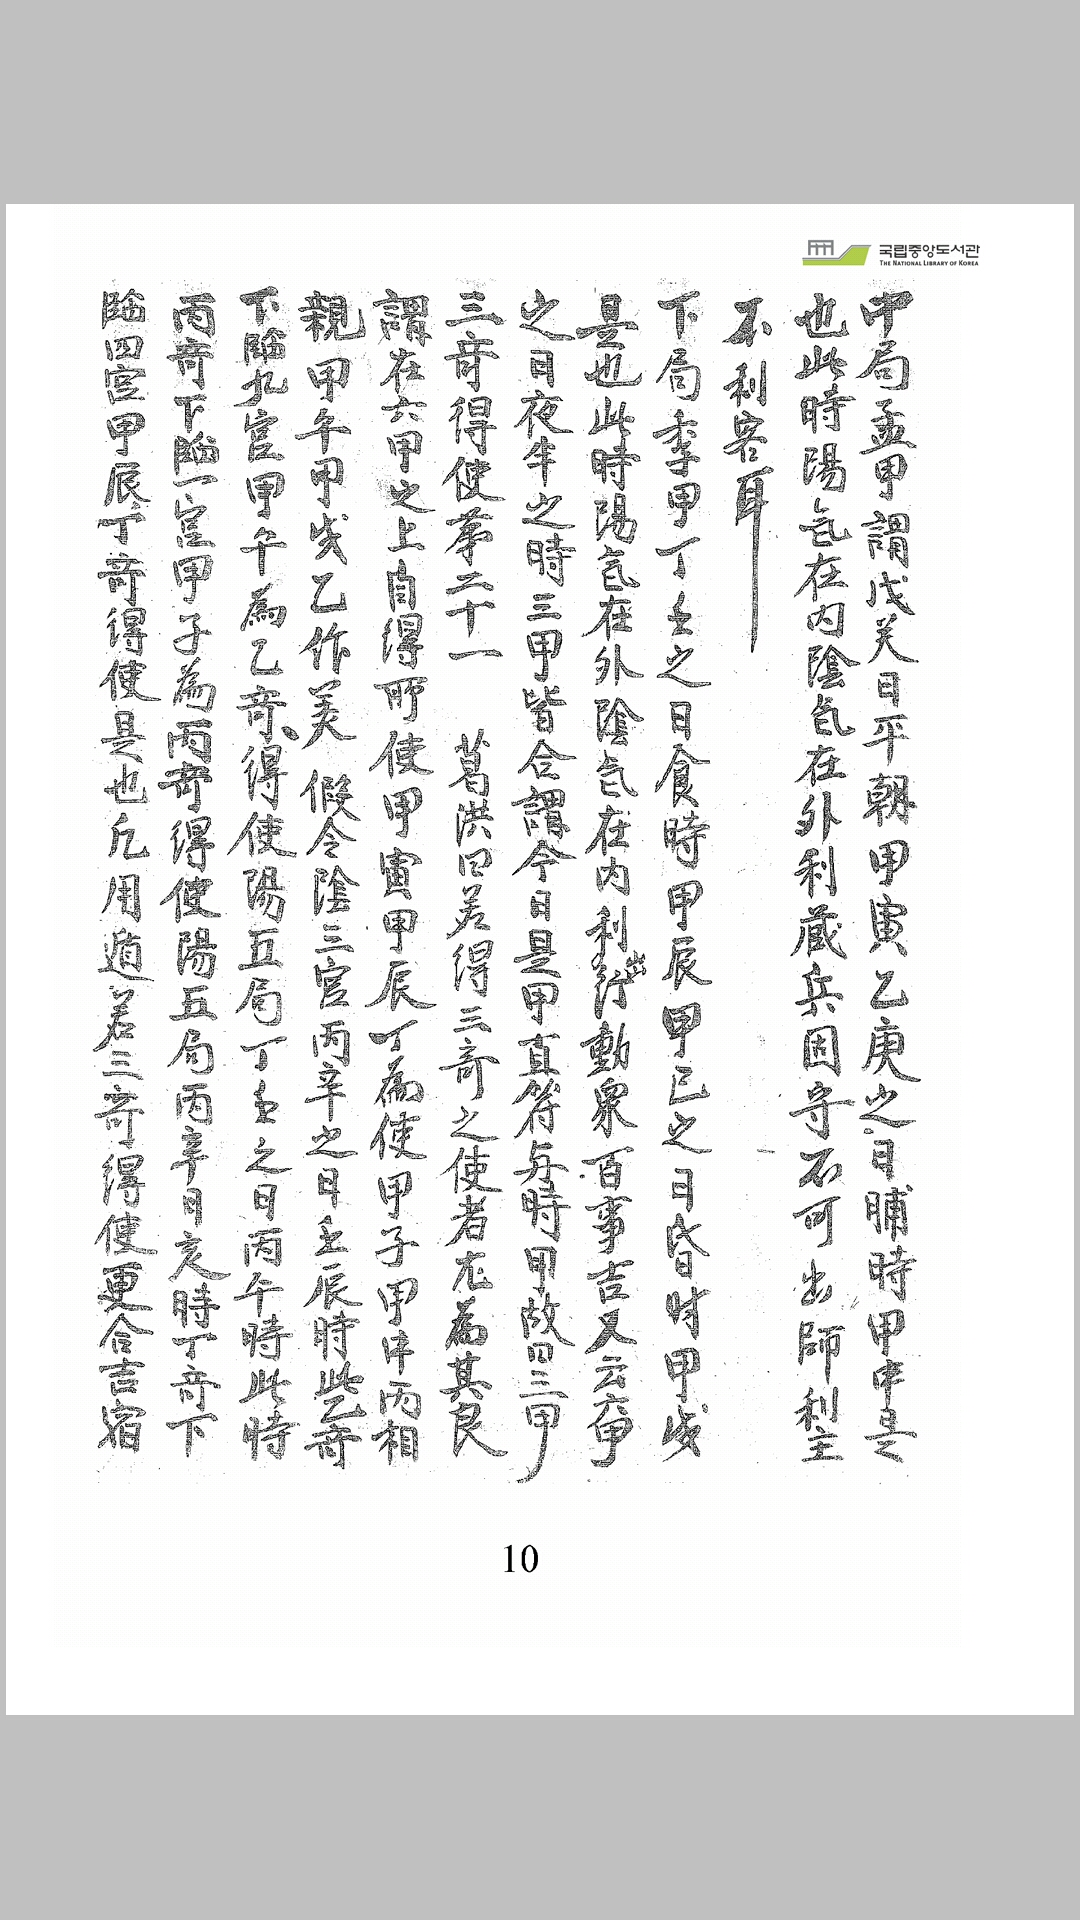 국립중앙도서관
THE NATIONAL LIBRARY OF KOREA
中局孟甲謂戊癸日平朝甲寅乙庚之日晡時甲申是
也此時陽氣在内陰氣在外利蔵兵固守不可出師利主
不利客耳
下局季甲丁壬之日食時甲辰甲己之日昏时甲戌
是也此時陽氣在外陰氣在内利出行動衆百事吉又云
之日夜半之時三甲皆合謂今日是甲直符与時甲故曰三甲
三竒得使第二十一 葛洪曰若得三竒之使者尤為其良
謂在六甲之上自得所使甲寅甲辰丁為使甲子甲申丙相
親甲午甲戌乙作美 假令陰三宮丙辛之日壬辰時此乙竒
下臨九宮甲午為乙竒得使陽五局丁壬之日丙午時此時
丙竒下臨一宮甲子為丙竒得使陽五局丙辛日亥時丁竒下
臨四宮甲辰丁竒得使是也凢用遁若三竒得使更合吉宿
10